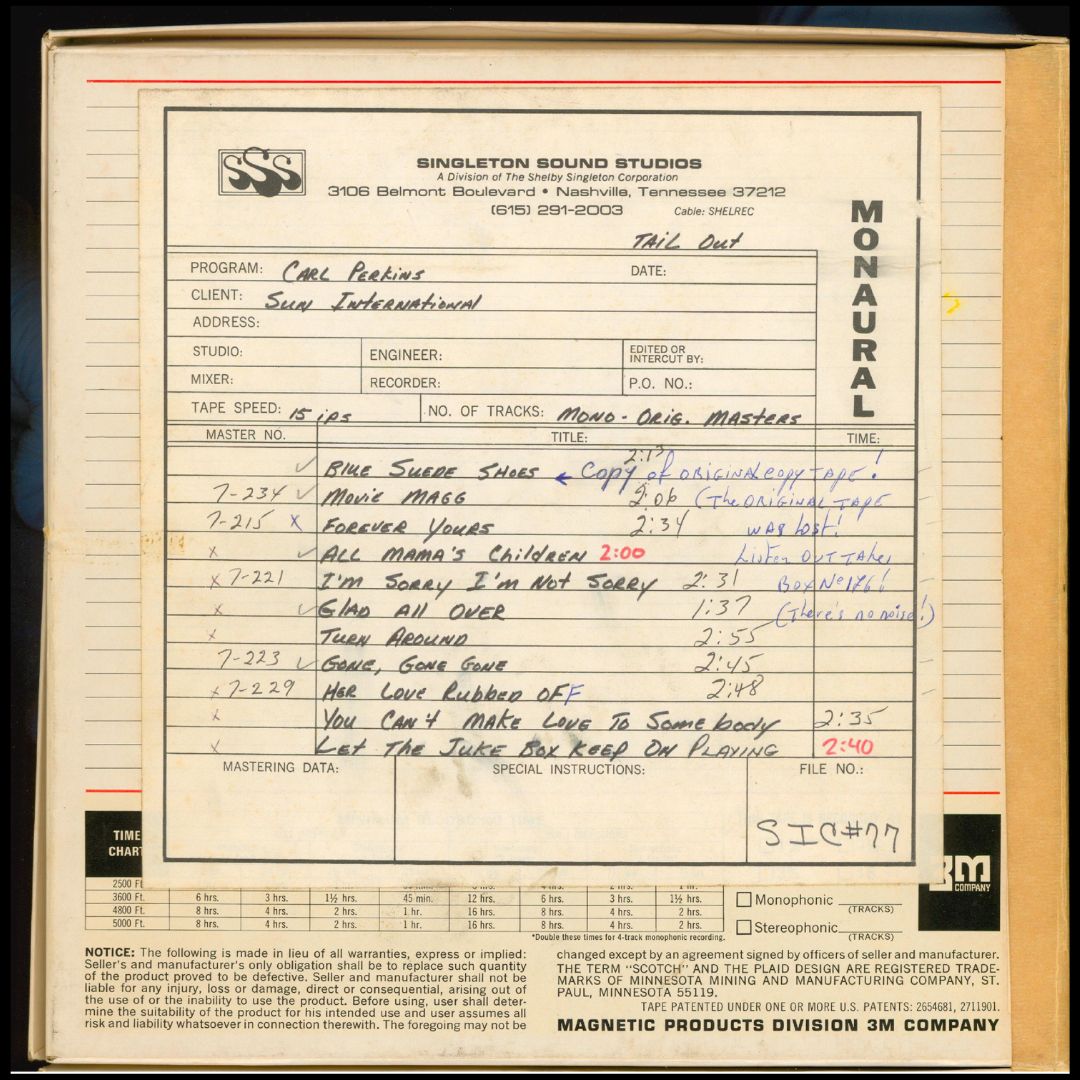 SSS
SINGLETON SOUND STUDIOS
A Division of The Shelby Singleton Corporation
3106 Belmont Boulevard • Nashville, Tennessee 37212
(615) 291-2003 Cable: SHELREC
MONAURAL
TAIL OUT
PROGRAM: CARL PERKINS DATE:
CLIENT: SUN INTERNATIONAL
ADDRESS:
STUDIO: ENGINEER: EDITED OR INTERCUT BY:
MIXER: RECORDER: P.O. NO.:
TAPE SPEED: 15 ips NO. OF TRACKS: MONO - ORIG. MASTERS
MASTER NO. TITLE: TIME:
✓ BLUE SUEDE SHOES 2:13 ← Copy of ORIGINAL copy TAPE!
7-234 ✓ MOVIE MAGG 2:06 (The ORIGINAL TAPE
7-215 x FOREVER YOURS 2:34 WAS lost!
x ✓ ALL MAMA'S CHILDREN 2:00 Listen OUT TAKE,
x 7-221 I'M SORRY I'M NOT SORRY 2:31 BOX Nº 176!
x ✓ GLAD ALL OVER 1:37 (There's no noise!)
x TURN AROUND 2:55
7-223 ✓ GONE, GONE GONE 2:45
x 7-229 HER LOVE RUBBED OFF 2:48
x YOU CAN'T MAKE LOVE TO SOMEBODY 2:35
x LET THE JUKE BOX KEEP ON PLAYING 2:40
MASTERING DATA: SPECIAL INSTRUCTIONS: FILE NO.:
SIC#77
TIME
CHART
3M
COMPANY
2500 Ft
3600 Ft. 6 hrs. 3 hrs. 1½ hrs. 45 min. 12 hrs. 6 hrs. 3 hrs. 1½ hrs.
4800 Ft. 8 hrs. 4 hrs. 2 hrs. 1 hr. 16 hrs. 8 hrs. 4 hrs. 2 hrs.
5000 Ft. 8 hrs. 4 hrs. 2 hrs. 1 hr. 16 hrs. 8 hrs. 4 hrs. 2 hrs.
*Double these times for 4-track monophonic recording.
Monophonic (TRACKS)
Stereophonic (TRACKS)
NOTICE: The following is made in lieu of all warranties, express or implied:
Seller's and manufacturer's only obligation shall be to replace such quantity
of the product proved to be defective. Seller and manufacturer shall not be
liable for any injury, loss or damage, direct or consequential, arising out of
the use of or the inability to use the product. Before using, user shall deter-
mine the suitability of the product for his intended use and user assumes all
risk and liability whatsoever in connection therewith. The foregoing may not be
changed except by an agreement signed by officers of seller and manufacturer.
THE TERM "SCOTCH" AND THE PLAID DESIGN ARE REGISTERED TRADE-
MARKS OF MINNESOTA MINING AND MANUFACTURING COMPANY, ST.
PAUL, MINNESOTA 55119.
TAPE PATENTED UNDER ONE OR MORE U.S. PATENTS: 2654681, 2711901.
MAGNETIC PRODUCTS DIVISION 3M COMPANY